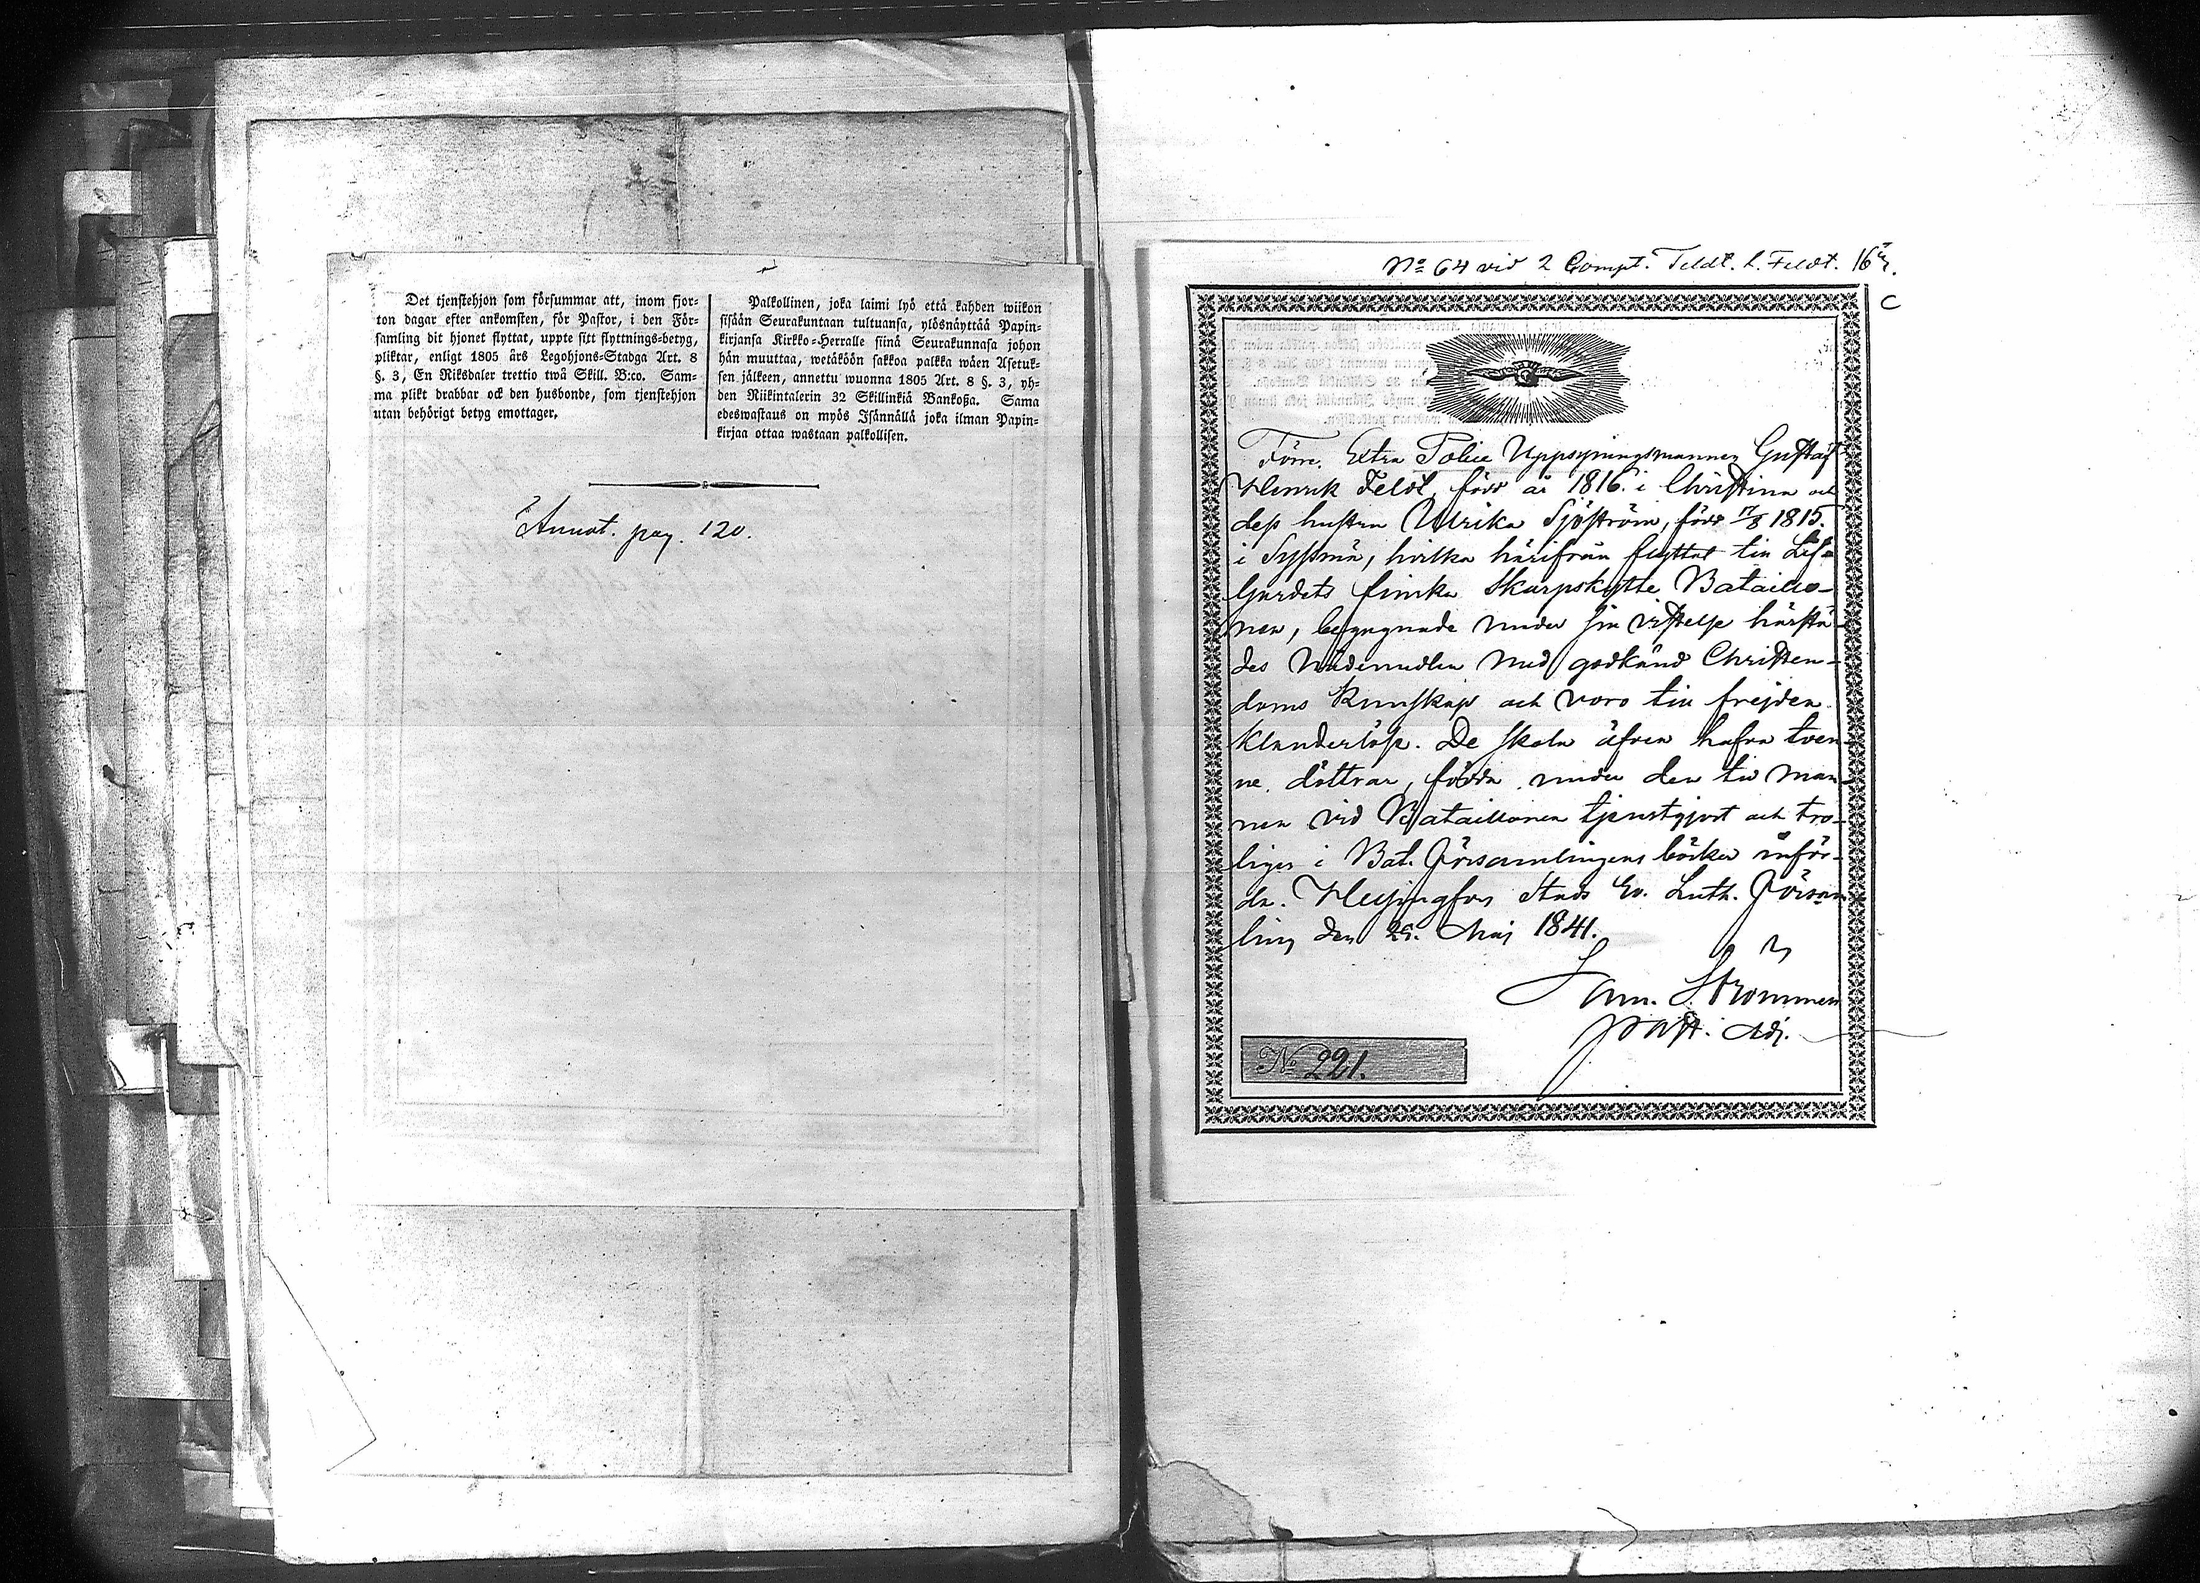 Det tjenstehjon som försummar att, inom fjor-
ton dagar efter ankomsten, för Pastor, i den För-
samling dit hjonet flyttat, uppte sitt flyttnings-betyg,
pliktar, enligt 1805 års Legohjons-Stadga Art. 8
§. 3, En Riksdaler trettio twå Skill. B:co. Sam-
ma plikt drabbar ock den husbonde, som tjenstehjon
utan behörigt betyg emottager.
Palkollinen, joka laimi lyö että kahden wiikon
sisään Seurakuntaan tultuansa, ylösnäyttää Papin-
kirjansa Kirkko-Herralle siinä Seurakunnasa johon
hän muuttaa, wetäköön sakkoa palkka wäen Asetuk-
sen jälkeen, annettu wuonna 1805 Art. 8 §. 3, yh-
den Riikintalerin 32 Skillinkiä Bankoßa. Sama
edeswastaus on myös Isännällä joka ilman Papin-
kirjaa ottaa wastaan palkollisen.
Annot. pag. 120.
No 64 vid 2 Compt. Feldt. 16
C
Förre Extra Police Uppsyningsmannen Gustaf
Henrik Feldt, född år 1816 i Christina och
dess hustru Ulrika Sjöström, född 17/8 1815.
i Syssmä, hvilka härifrån flyttat till Lif-
Gardets finska Skarpskytte Bataillo-
nen, begagnade under sin vistelse härstä-
des Nådemedlen med godkänd Christen-
doms Kunskap och voro till frejden
klanderlöse. De skola äfven hafva tven-
ne döttrar, födda under den tid man-
nen vid Bataillonen tjenstgjort och tro-
ligen i Bat. Församlingens böcker införd-
da. Helsingfors Stads Ev. Luth. Försam-
ling den 29. Maj 1841.
Sam. Strömmer
past. Adj.
No 221.